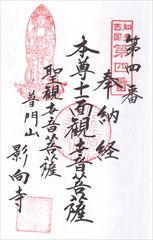 第四番
奉納経
本尊十一面観世音菩薩
聖観世音菩薩
普門山
影向寺
知多
西国
第四番